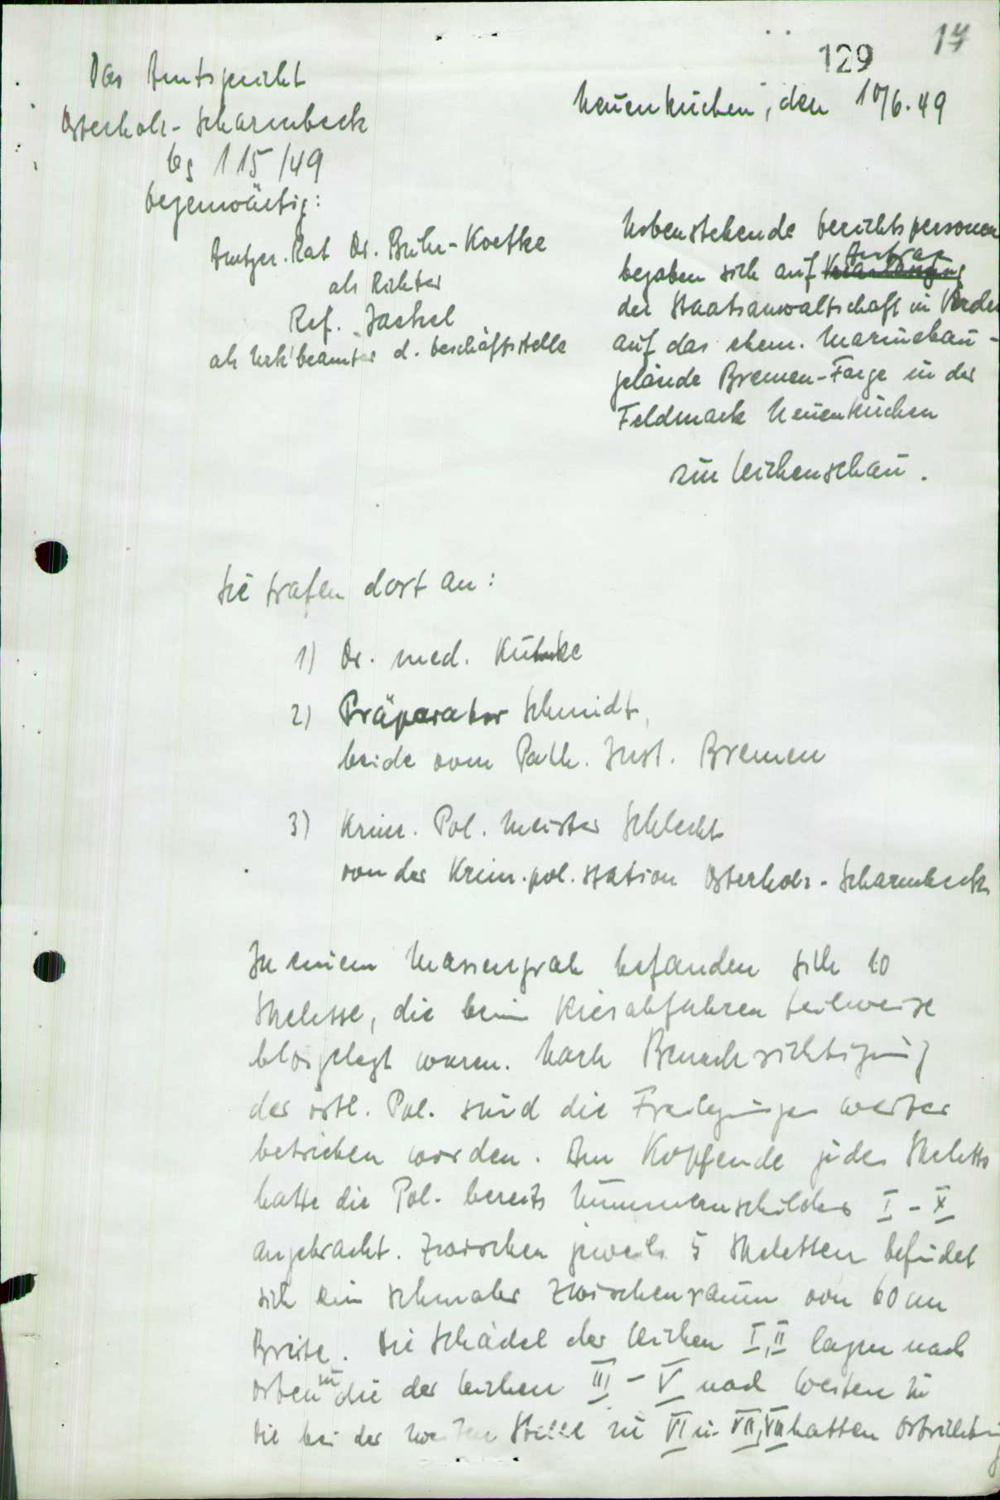 129 17
Das Amtsgericht
Osterholz-Scharmbeck
Gs 115/49
Neuenkirchen, den 10/6.49
Gegenwärtig:
Amtsger. Rat Dr. Bruhn-Koefke
als Richter
Ref. Jaekel
als Urk'beamter d. Geschäftsstelle
Nebenstehende Gerichtspersonen
begaben sich auf Antrag
der Staatsanwaltschaft in Verden
auf das ehem. Marinebau-
gelände Bremen-Farge in der
Feldmark Neuenkirchen
zur Leichenschau.
Sie trafen dort an:
1) Dr. med.
2) Präparator Schmidt,
beide vom Path. Inst. Bremen
3) Krim. Pol. Meister Schlecht
von der Krim.pol.station Osterholz-Scharmbeck
In einem Massengrab befanden sich 10
Skelette, die beim Kiesabfahren teilweise
blosgelegt waren. Nach Benachrichtigung
der örtl. Pol. sind die Freilegungen weiter
betrieben worden. Am Kopfende jedes Skeletts
hatte die Pol. bereits Nummernschilder I - X
angebracht. Zwischen jeweils 5 Skeletten befindet
sich ein schmaler Zwischenraum von 60 cm
Breite. Die Schädel der Leichen I, II lagen nach
Osten die der Leichen III - V nach Westen zu
Die bei der VI u. VII, VIII hatten Ostrichtung